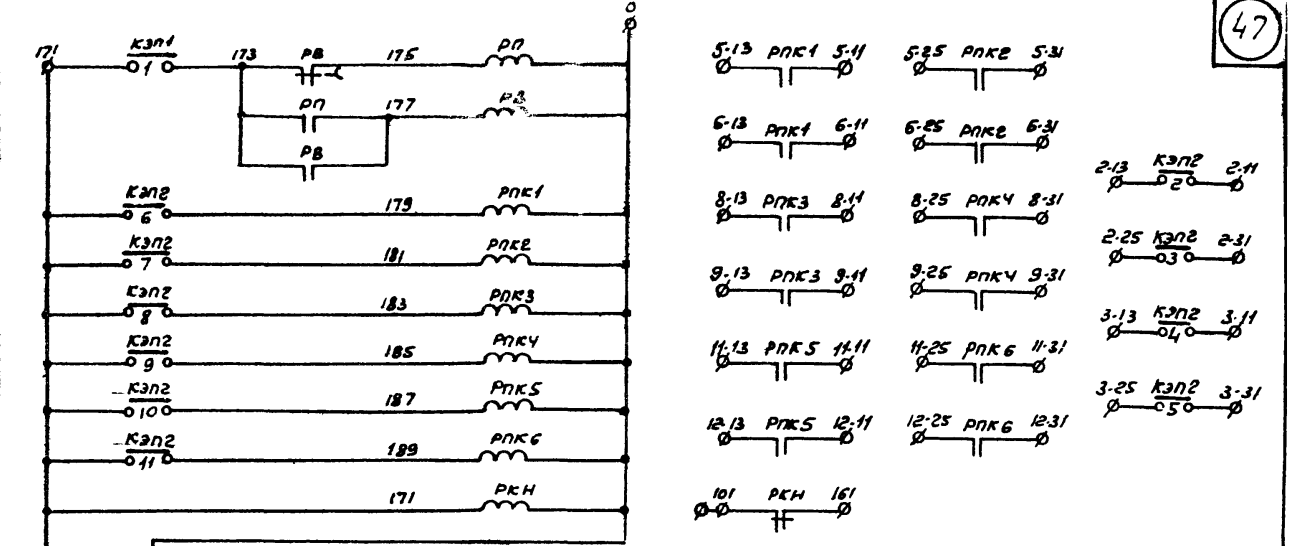 0
47
171 КЭП1 1 173 РВ 175 РП
РП 177 РВ
РВ
КЭП2 6 179 РПК1
КЭП2 7 181 РПК2
КЭП2 8 183 РПК3
КЭП2 9 185 РПК4
КЭП2 10 187 РПК5
КЭП2 11 189 РПК6
171 РКН
5-13 РПК1 5-11
6-13 РПК1 6-11
8-13 РПК3 8-11
9-13 РПК3 9-11
11-13 РПК5 11-11
12-13 РПК5 12-11
101 РКН 161
5-25 РПК2 5-31
6-25 РПК2 6-31
8-25 РПК4 8-31
9-25 РПК4 9-31
11-25 РПК6 11-31
12-25 РПК6 12-31
2-13 КЭП2 2 2-11
2-25 КЭП2 3 2-31
3-13 КЭП2 4 3-11
3-25 КЭП2 5 3-31